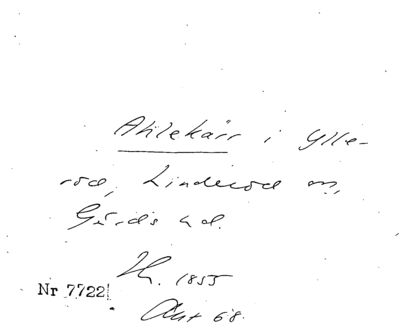 Ahlekärr i Ylle-
röd, Linderöd sn,
Gärds hd.
Hk. 1855
Nr 7722
Akt 68.